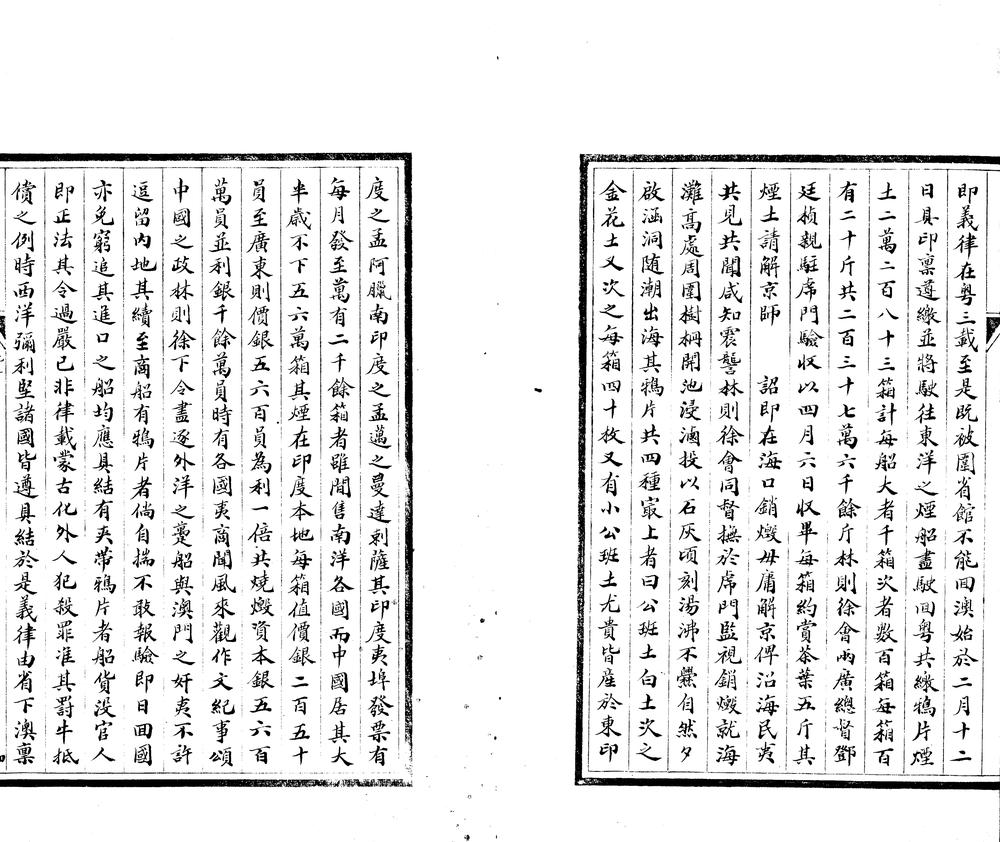 即義律在粵三載至是既被圍省館不能回澳始於二月十二
日具印稟遵繳並將駛往東洋之煙船盡駛回粵共繳鴉片煙
土二萬二百八十三箱計每船大者千箱次者數百箱每箱百
有二十斤共二百三十七萬六千餘斤林則徐會兩廣總督鄧
廷楨親駐虎門驗收以四月六日收畢每箱約賞茶葉五斤其
煙土請解京師　詔即在海口銷燬毋庸解京俾沿海民夷
共見共聞咸知震讋林則徐會同督撫於虎門監視銷燬就海
灘高處周圍樹柵開池浸滷投以石灰頃刻湯沸不爨自然夕
啟涵洞随潮出海其鴉片共四種冣上者曰公班土白土次之
金花土又次之每箱四十枚又有小公班土尤貴皆産於東印
度之孟阿臘南印度之孟邁之曼達剌薩其印度夷埠發票有
每月發至萬有二千餘箱者雖間售南洋各國而中國居其大
半歲不下五六萬箱其煙在印度本地每箱值價銀二百五十
員至廣東則價銀五六百員為利一倍共燒燬資本銀五六百
萬員並利銀千餘萬員時有各國夷商聞風來觀作文紀事頌
中國之政林則徐下令盡逐外洋之躉船與澳門之奸夷不許
逗留内地其續至商船有鴉片者倘自揣不敢報驗即日回國
亦免窮追其進口之船均應具結有夾帶鴉片者船貨没官人
即正法其令過嚴已非律載蒙古化外人犯殺罪准其罰牛抵
償之例時西洋彌利堅諸國皆遵具結於是義律由省下澳稟